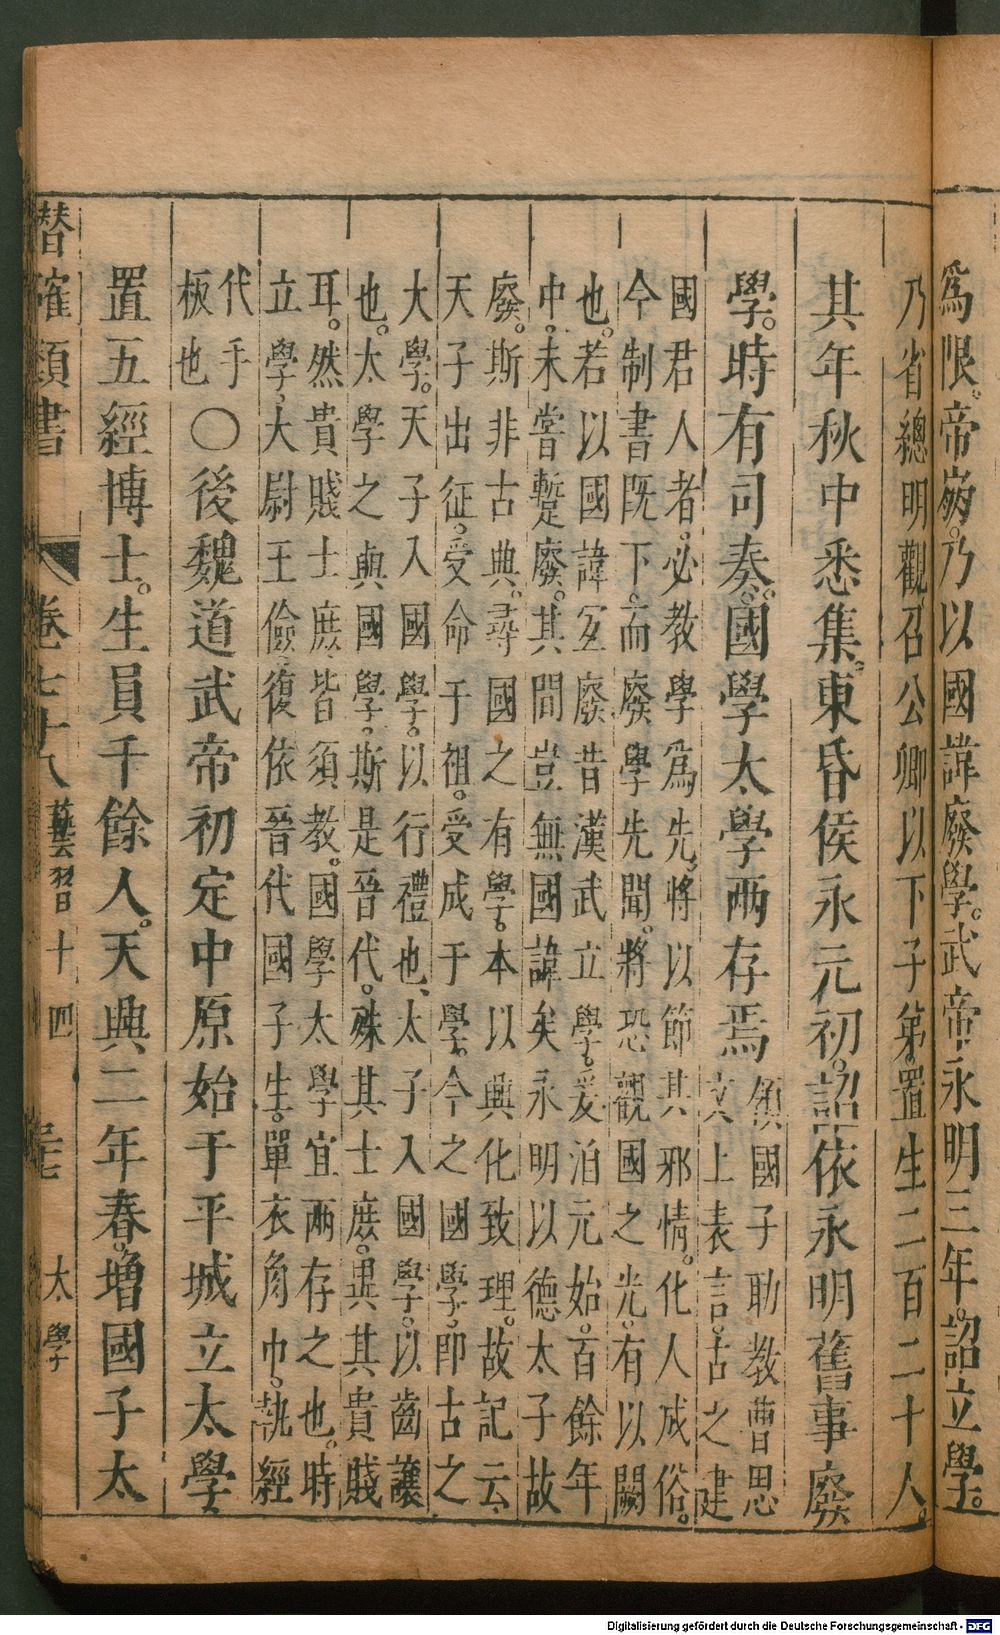 為限。帝崩。乃以國諱廢學。武帝永明三年。詔立學。
乃省總明觀召公卿以下子弟。置生二百二十人。
其年秋中悉集。東昏侯永元初。詔依永明舊事廢
學。時有司奏。國學太學兩存焉
領國子助教曹思
文上表言。古之建
國君人者。必教學為先。將以節其邪情。化人成俗。
今制書既下。而廢學先聞。將恐觀國之光。有以闕
也。若以國諱宜廢昔漢武立學。爰洎元始。百餘年
中。未嘗蹔廢。其間豈無國諱矣永明以德太子故
廢。斯非古典。尋國之有學。本以興化致理。故記云
天子出征。受命于祖。受成于學。今之國學。即古之
大學。天子入國學。以行禮也、太子入國學。以齒讓
也。太學之與國學。斯是晉代。殊其士庶。異其貴賤
耳。然貴賤士庶、皆須教。國學太學宜兩存之也。時
立學、大尉王儉、復依晉代國子生。單衣角巾。執經
代手
板也
〇後魏道武帝初定中原始于平城立太學
置五經博士。生員千餘人。天興二年春。增國子太
潛確類書 卷七十八 藝習十四 太學
Digitalisierung gefördert durch die Deutsche Forschungsgemeinschaft - DFG